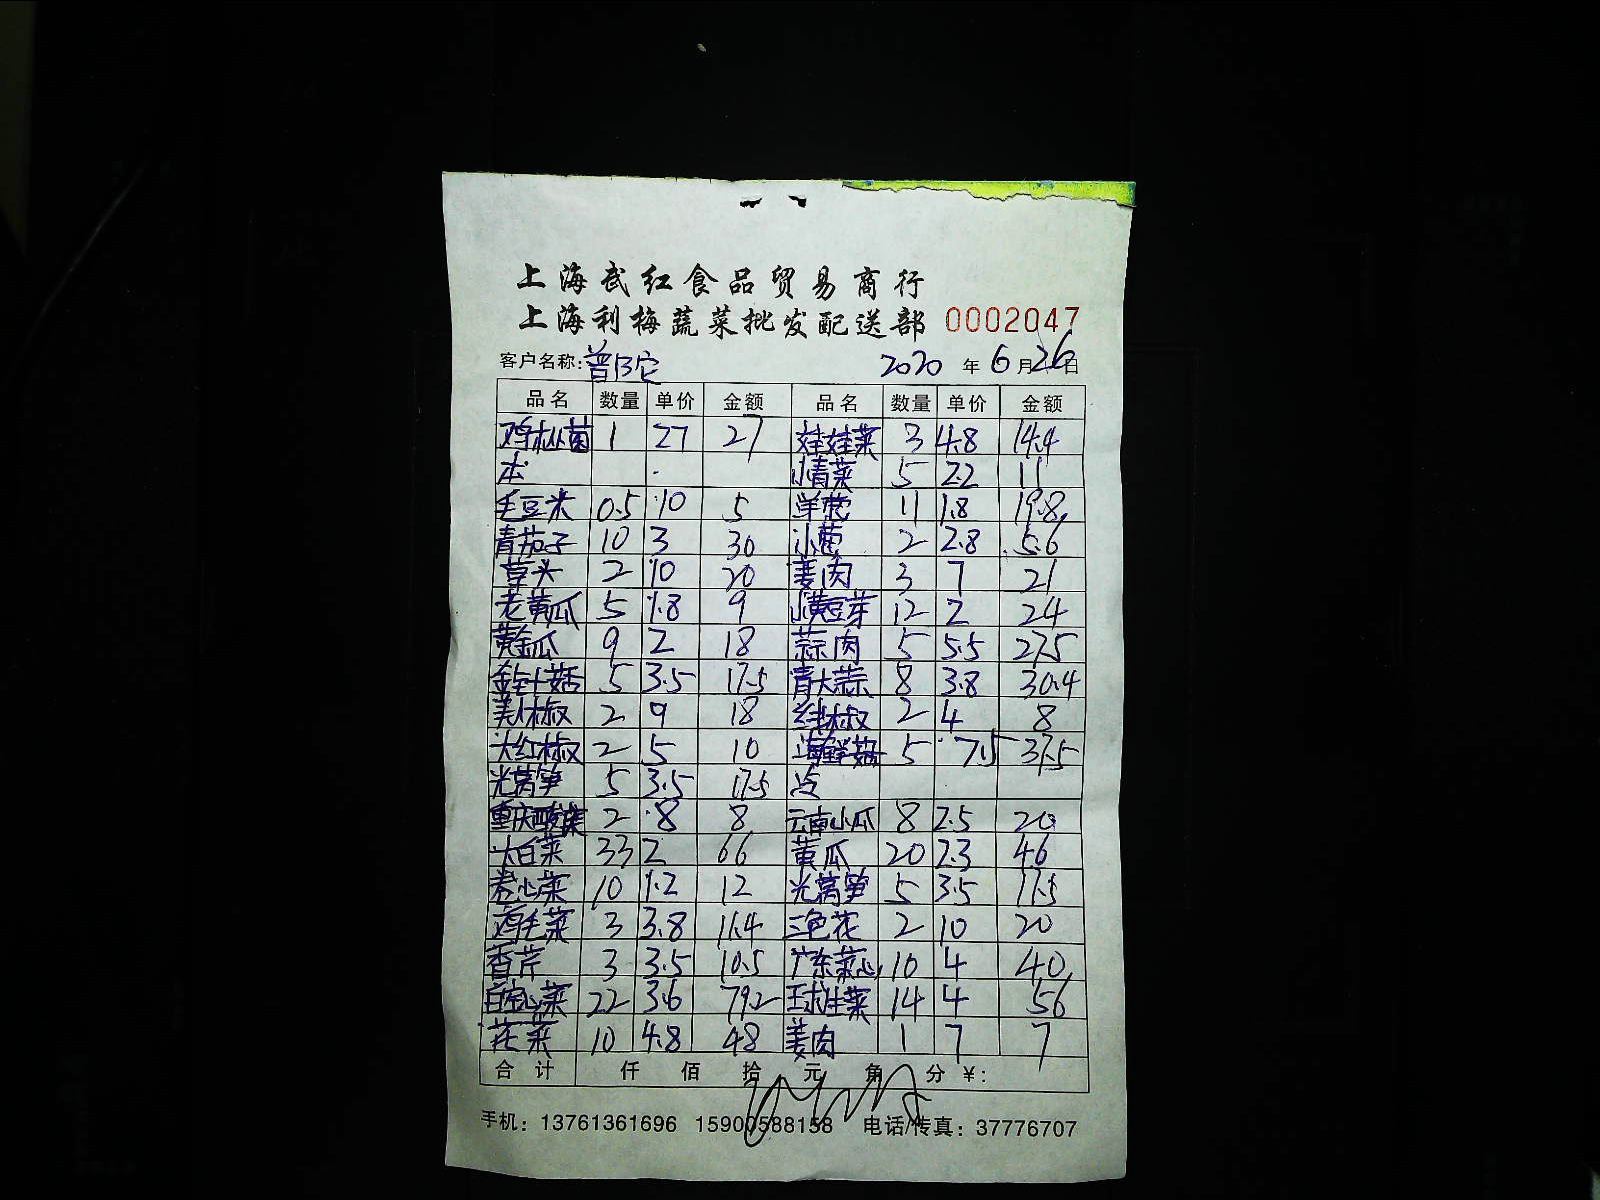 上海武红食品贸易商行
上海利梅蔬菜批发配送部 0002047
客户名称: 普陀 2020 年 6 月 26 日
品名 数量 单价 金额 品名 数量 单价 金额
鸡枞菌 1 27 27 娃娃菜 3 4.8 14.4
本 小青菜 5 2.2 11
毛豆米 0.5 10 5 洋葱 11 1.8 19.8
青茄子 10 3 30 小葱 2 2.8 5.6
草头 2 10 20 姜肉 3 7 21
老黄瓜 5 1.8 9 小黄豆芽 12 2 24
黄金瓜 9 2 18 蒜肉 5 5.5 27.5
金针菇 5 3.5 17.5 青大蒜 8 3.8 30.4
美人椒 2 9 18 线椒 2 4 8
大红椒 2 5 10 海鲜菇 5 7.5 37.5
光莴笋 5 3.5 17.5
重庆酸菜 2 8 8 云南小瓜 8 2.5 20
大白菜 33 2 66 黄瓜 20 2.3 46
卷心菜 10 1.2 12 光莴笋 5 3.5 17.5
鸡毛菜 3 3.8 11.4 三色花 2 10 20
香芹 3 3.5 10.5 广东菜心 10 4 40
白空心菜 22 3.6 79.2 球生菜 14 4 56
花菜 10 4.8 48 姜肉 1 7 7
合计 仟 佰 拾 元 角 分 ¥:
手机: 13761361696 15900588158 电话/传真: 37776707